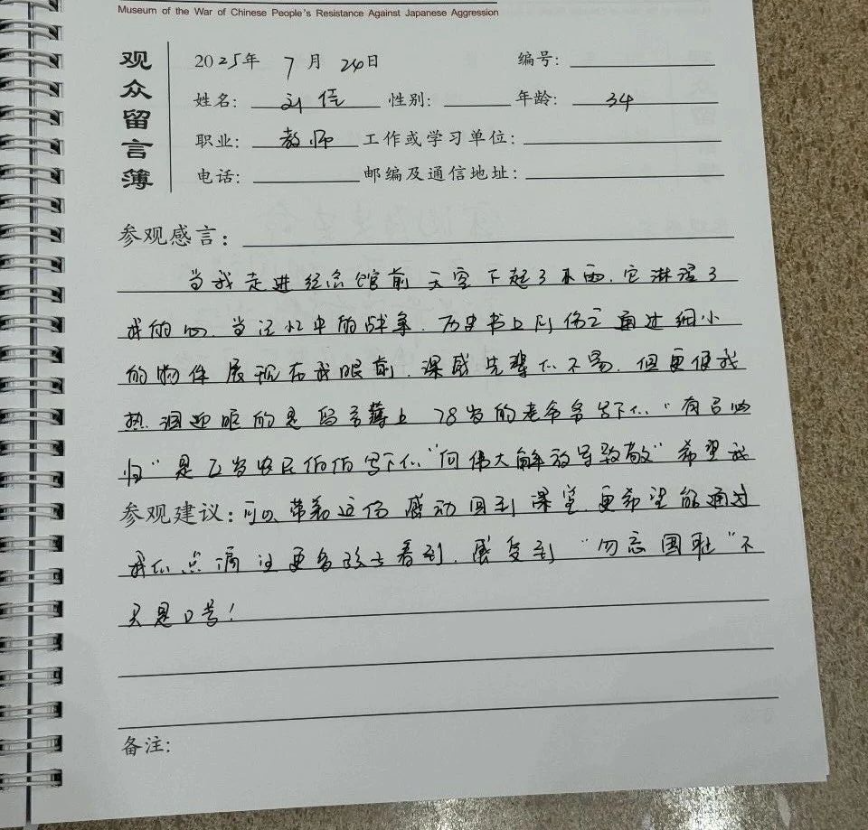 Museum of the War of Chinese People's Resistance Against Japanese Aggression
观众留言簿
2025年 7月 24日 编号:
姓名: 刘佳 性别: 年龄: 34
职业: 教师 工作或学习单位:
电话: 邮编及通信地址:
参观感言:
当我走进纪念馆前 天空下起了小雨.它淋湿了
我的心.当记忆中的战争.历史书上的伤亡通过细小
的物件展现在我眼前.深感先辈们不易.但更使我
热泪迎眶的是留言薄上78岁的老爷爷写下的"有召必
归"是72岁农民伯伯写下的"向伟大解放军致敬"希望我
参观建议:可以带着这份感动回到课堂.更希望能通过
我们点滴让更多孩子看到.感受到"勿忘国耻"不
只是口号!
备注: